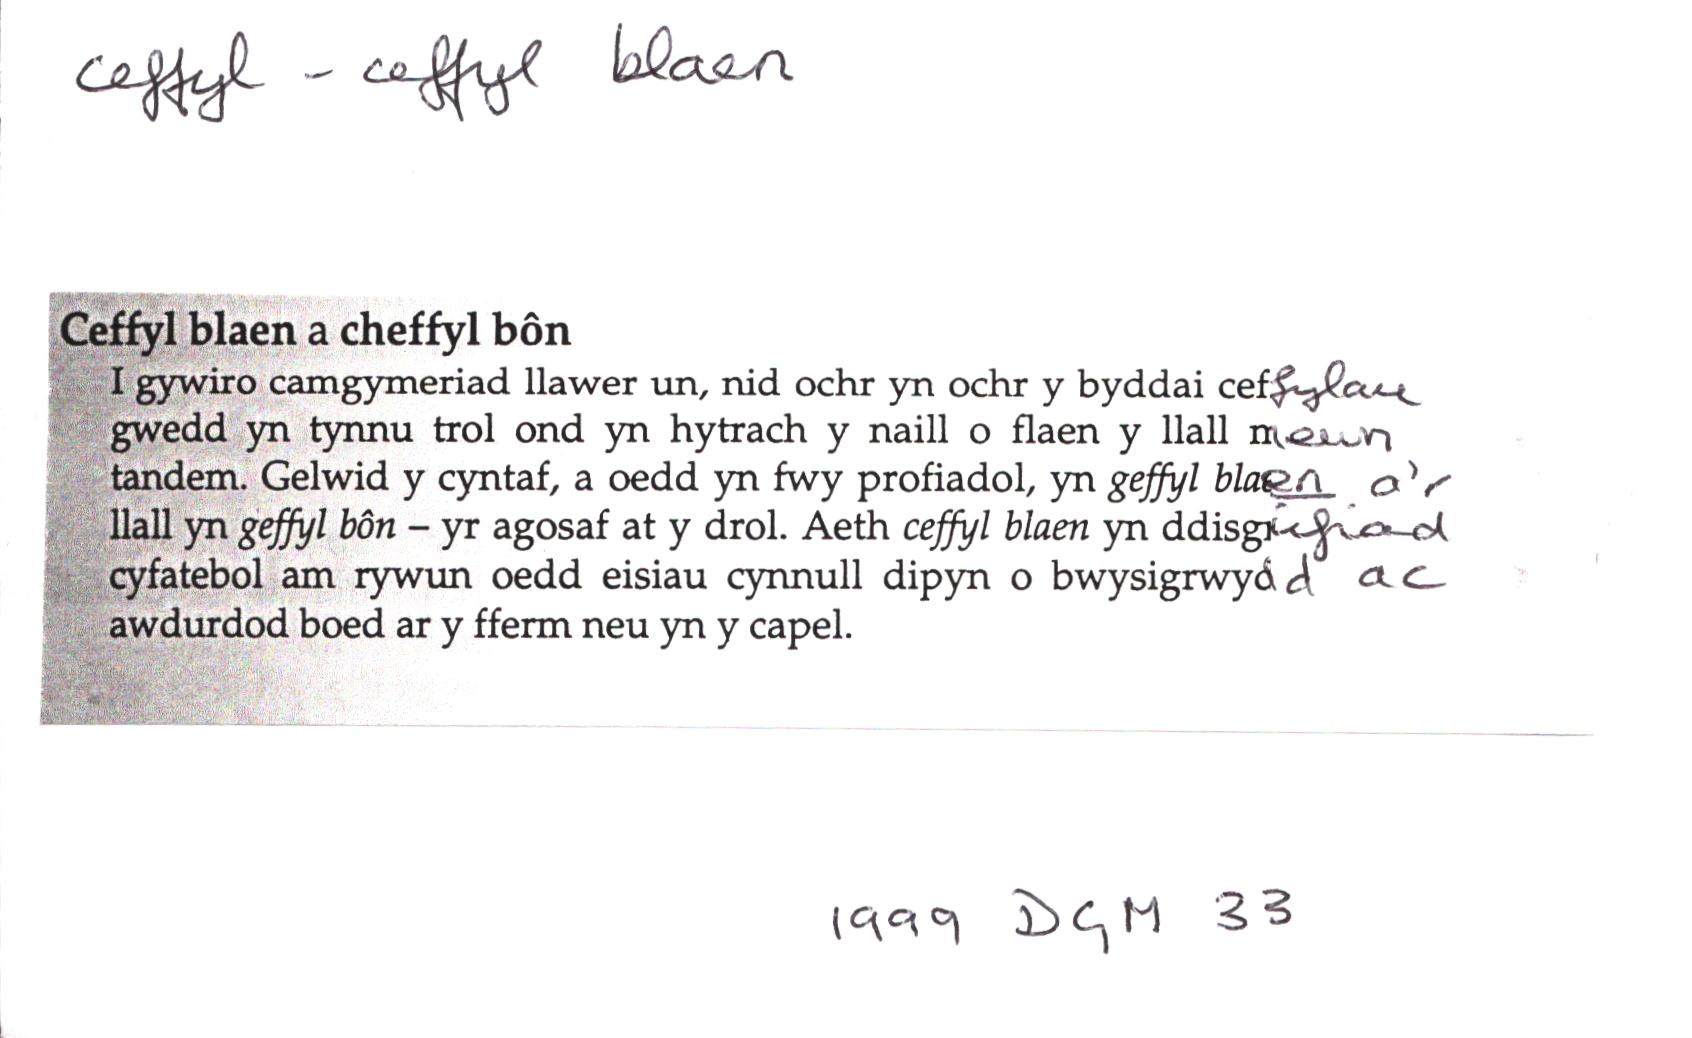 ceffyl - ceffyl blaen
Ceffyl blaen a cheffyl bôn
I gywiro camgymeriad llawer un, nid ochr yn ochr y byddai ceffylau
gwedd yn tynnu trol ond yn hytrach y naill o flaen y llall mewn
tandem. Gelwid y cyntaf, a oedd yn fwy profiadol, yn geffyl blaen a'r
llall yn geffyl bôn – yr agosaf at y drol. Aeth ceffyl blaen yn ddisgrifiad
cyfatebol am rywun oedd eisiau cynnull dipyn o bwysigrwydd ac
awdurdod boed ar y fferm neu yn y capel.
1999 DGM 33